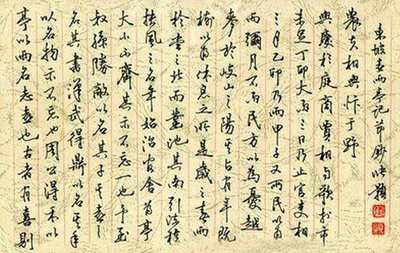 亭以雨名志喜也古者有喜則
以名物示不忘也周公得禾以
名其書漢武得鼎以名其年
叔孫勝敵以名其子其喜之
大小不齊其示不忘一也予至
扶風之明年始治官舍為亭
於堂之北而鑿池其南引流種
樹以為休息之所是歲之春雨
麥於岐山之陽其占為有年既
而彌月不雨民方以為憂越
三月乙卯乃雨甲子又雨民以為
未足丁卯大雨三日乃止官吏相
與慶於庭商賈相與歌於市
農夫相與忭于野
東坡喜雨亭記節錄